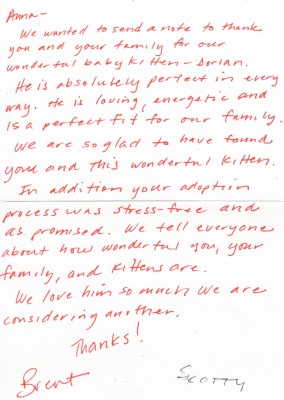 Anna-
We wanted to send a note to thank
you and your family for our
wonderful baby kitten - Dorian.
He is absolutely perfect in every
way. He is loving, energetic and
is a perfect fit for our family.
We are so glad to have found
you and this wonderful kitten.
In addition your adoption
process was stress-free and
as promised. We tell everyone
about how wonderful you, your
family, and kittens are.
We love him so much we are
considering another.
Thanks!
Brent
SCOTTY